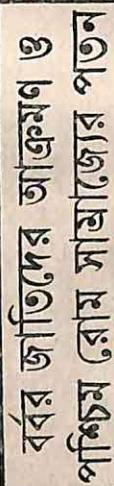 বর্বর জাতিদের আক্রমণ ও
পশ্চিম রোম সাম্রাজ্যের পতন